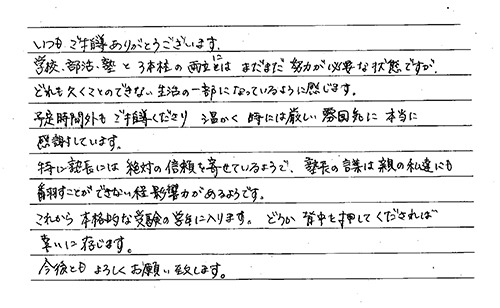 いつもご指導ありがとうございます。
学校、部活、塾と3本柱の両立にはまだまだ努力が必要な状態ですが、
どれも欠くことのできない生活の一部になっているように感じます。
予定時間外もご指導くださり 温かく 時には厳しい雰囲気に 本当に
感謝しています。
特に塾長には絶対の信頼を寄せているようで、塾長の言葉は親の私達にも
すことができない程影響力があるようです。
これから本格的な受験の学年に入ります。どうか背中を押してくだされば
幸いに存じます。
今後ともよろしくお願い致します。